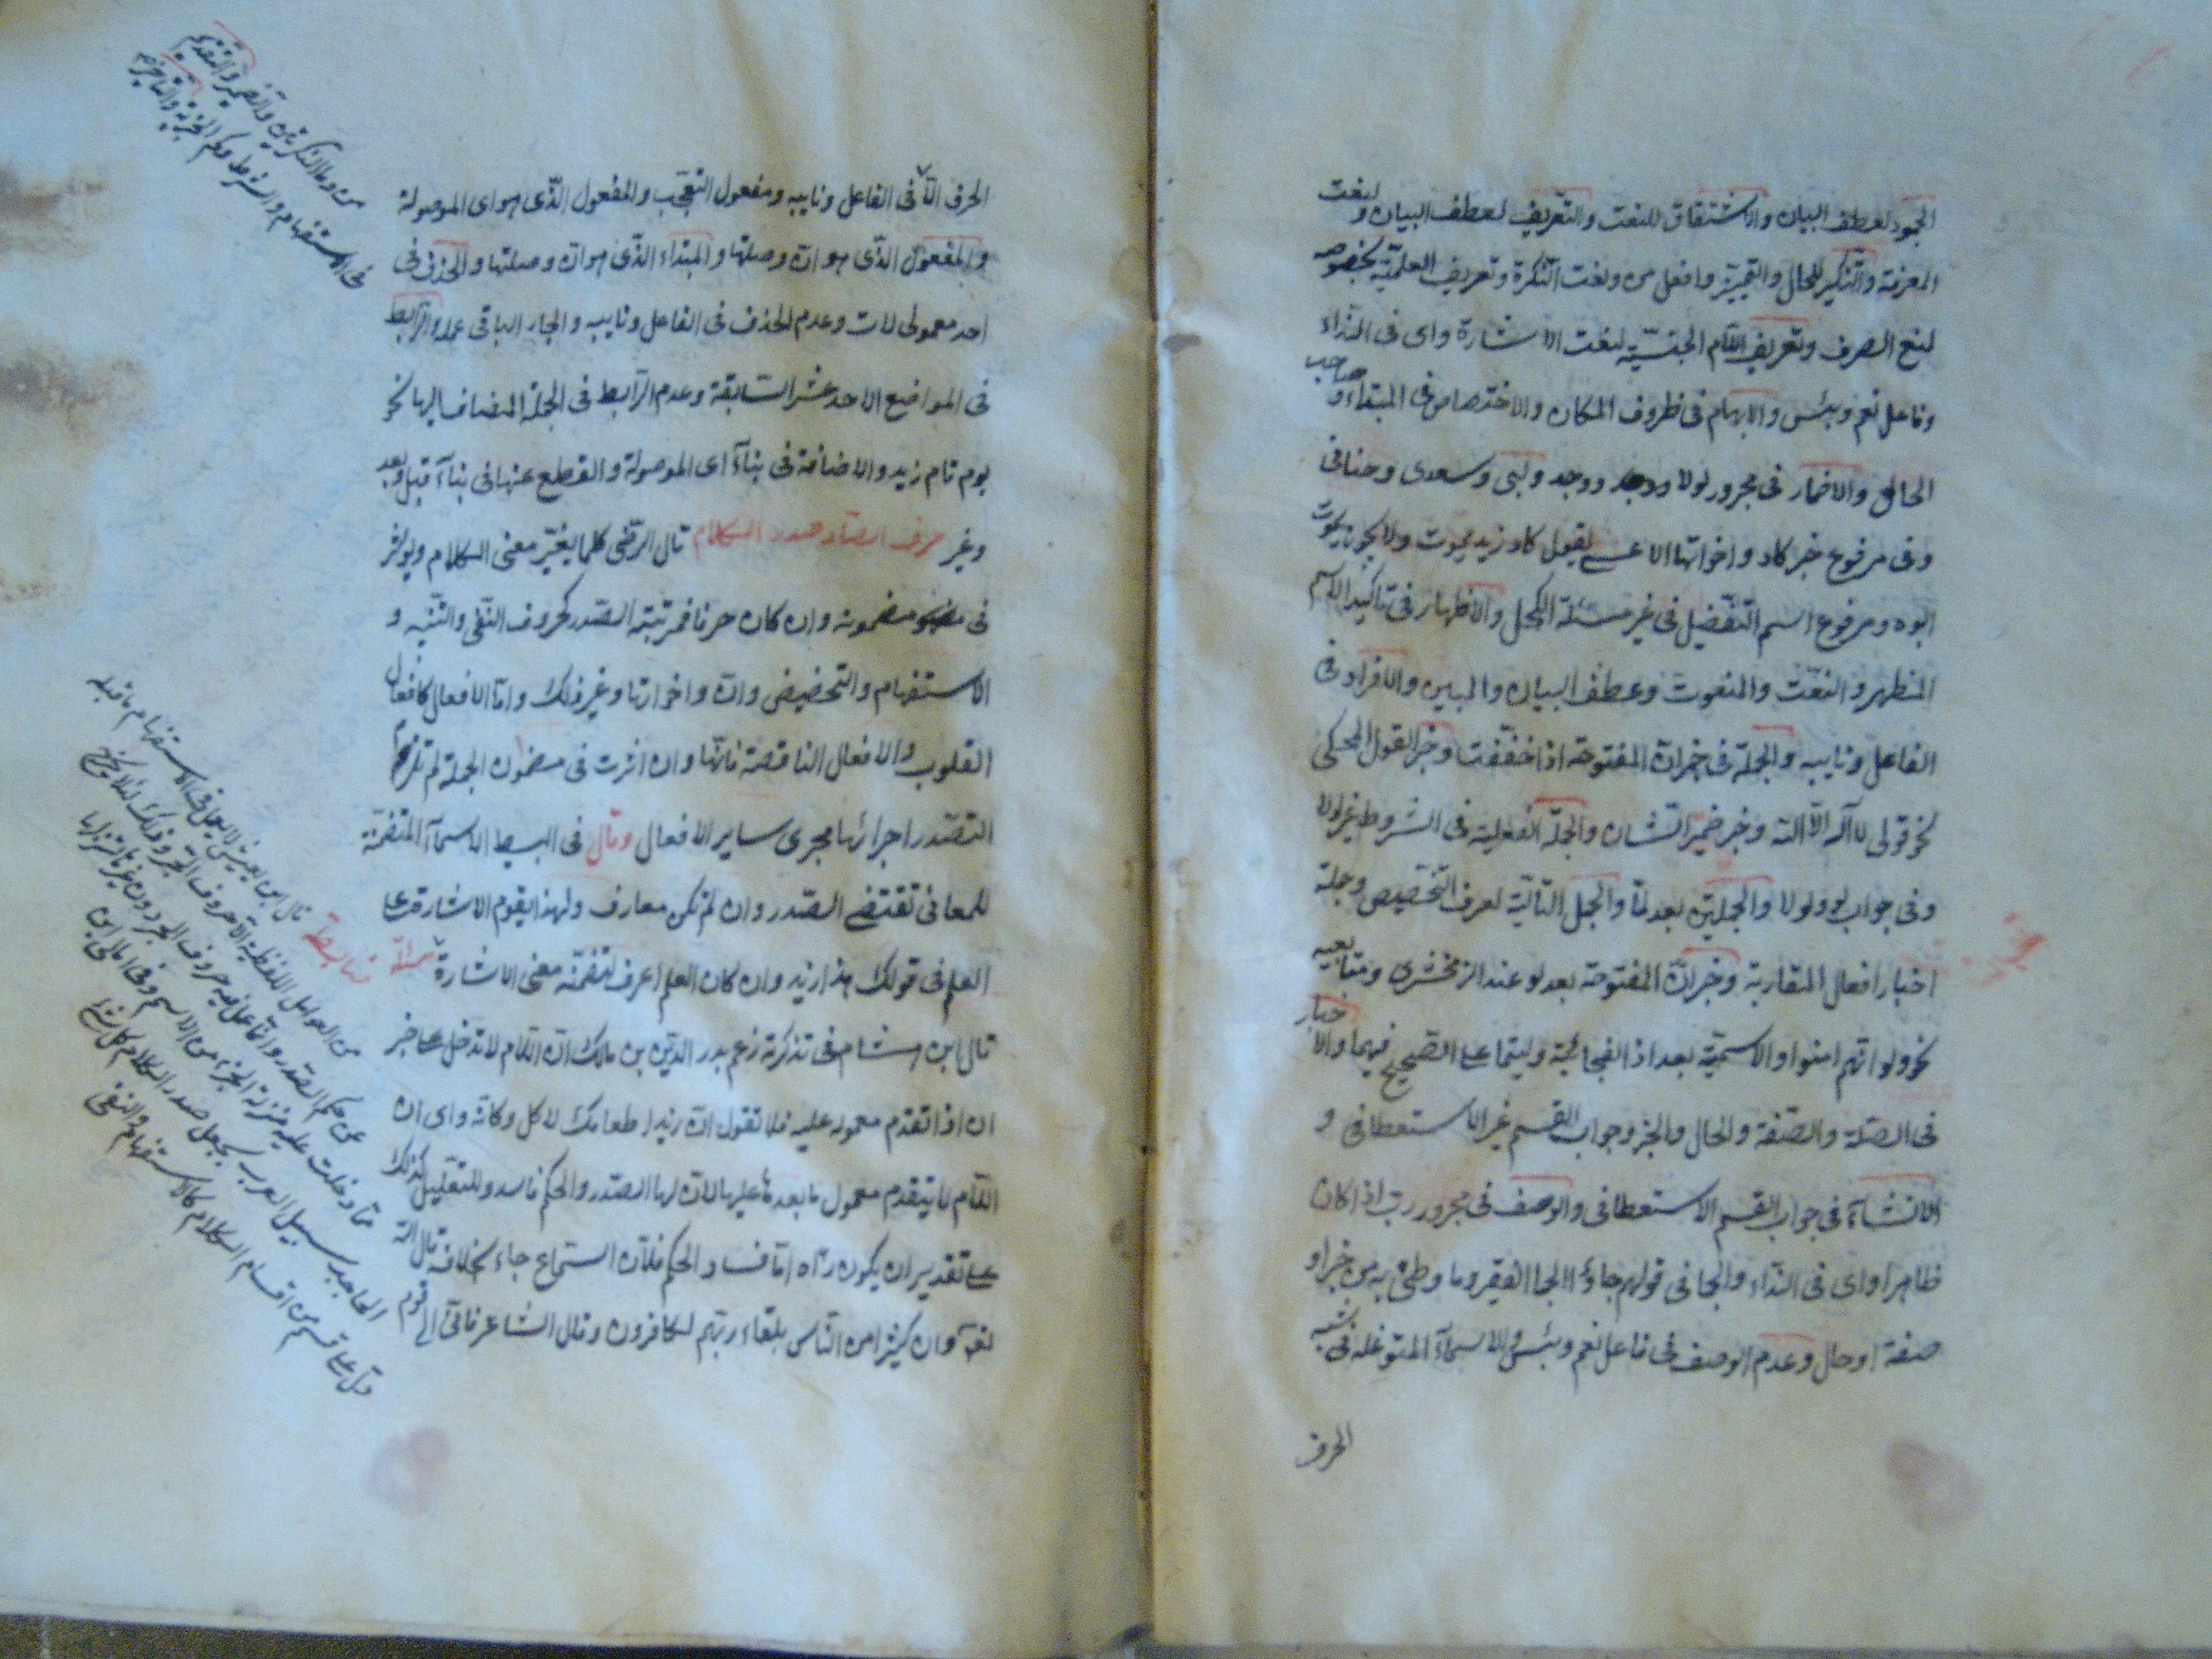 الجمود لعطف البيان والاشتقاق للنعت والتعريف لعطف البيان ولنعت
المعرفة والتنكير للحال والتمييز وافعل من ونعت النكرة وتعريف العلمية بخصوصه
لمنع الصرف وتعريف اللام الجنسية لنعت الاشارة واى فى النداء
وفاعل نعم وبئس والابهام فى ظروف المكان والاختصاص فى المبتداء وصاحب
الحال والاضمار فى مجرور لولا ووحد ولبى وسعدى وحنانى
وفى مرفوع خبر كاد واخواتها الا عسى يقول كاد زيد يموت ولا يجوز يموت
ابوه ومرفوع اسم التفضيل فى غير مسئلة الكحل والاظهار فى تاكيد الاسم
المظهر والنعت والمنعوت وعطف البيان والمبين والافراد فى
الفاعل ونايبه والجملة فى خبر ان المفتوحة اذا خففت وخبر القول المحكى
نحو قولى لا اله الا الله وخبر ضمير الشان والجملة الفعلية فى الشروط غير لولا
وفى جواب لو ولولا والجملتين بعد لما والجمل التالية لحرف التخصيص وجملة
اخبار افعال المقاربة وخبر ان المفتوحة بعد لو عند الزمخشرى ومتابعيه
نحو ولو انهم امنوا والاسمية بعد اذا الفجائية وليتما على الصحيح فيهما والاخبار
فى الصلة والصفة والحال والخبر وجواب القسم غير الاستعطافى و
الانشاء فى جواب القسم الاستعطافى والوصف فى مجرور رب اذا كان
ظاهرا واى فى النداء والجما فى قولهم جاءوا الجما الغفير وما وطئ به من خبر او
صفة او حال وعدم الوصف فى فاعل نعم وبئس والاسماء المتوغلة فى شبه
الحرف
الحرف الثانى الفاعل ونايبه ومفعول التعجب والمفعول الذى هو اى الموصولة
والمفعول الذى هو ان وصلتها والمبتداء الذى هو ان وصلتها والحذف فى
احد معمولى لات وعدم الحذف فى الفاعل ونايبه والجار الباقى عمله والرابط
فى المواضع الاحد عشر السابقة وعدم الرابط فى الجملة المضاف اليها نحو
يوم قام زيد والاضافة فى بناء اى الموصولة والقطع عنها فى بناء قبل وبعد
وغير حرف الصاد صدر الكلام قال الرضى كلما يغير معنى الكلام ويوثر
فى مضمونه وان كان حرفا فمرتبته الصدر كحروف النفى والتنبيه و
الاستفهام والتحضيض وان واخواتها وغير ذلك واما الافعال كافعال
القلوب والافعال الناقصة فانها وان اثرت فى مضمون الجملة لم تلزم
التصدر اجرائها مجرى ساير الافعال وقال فى البسيط الاسماء المتضمنة
للمعانى تقتضى الصدر وان لم تكن معارف ولهذا يقوم الاشارة على
العلم فى قولك هذا زيد وان كان العلم اعرف لتضمنه معنى الاشارة مسئلة
قال ابن هشام فى تذكرة زعم بدر الدين بن مالك ان اللام لا تدخل على خبر
ان اذا تقدم معموله عليه فلا تقول ان زيدا طعامك لاكل وكانه راى ان
اللام لا يتقدم معمول ما بعدها عليها لان لها الصدر والحكم فاسد وللتعليل كذلك
على تقدير ان يكون راه اما فساد الحكم فلان السماع جاء بخلافه قال الله
لغة وان كثيرا من الناس بلقاء ربهم لكافرون وقال الشاعر فانى الى قوم
فى الاستفهام والشرط وكم الخبرية والتاخير
قال ابن يعيش لا يعمل فى الاستفهام ما قبله
من العوامل اللفظية الا حروف الجر وذلك لئلا يخرج
عن حكم الصدر وانما عمل فيه حروف الجر دون غيرها لتنزلها
مما دخلت عليه منزلة الجزء من الاسم وفى امالى ابن
الحاجب سبيل العرب يجعل صدر الكلام كل شئ
دل على قسم من اقسام الكلام كالاستفهام والنفى